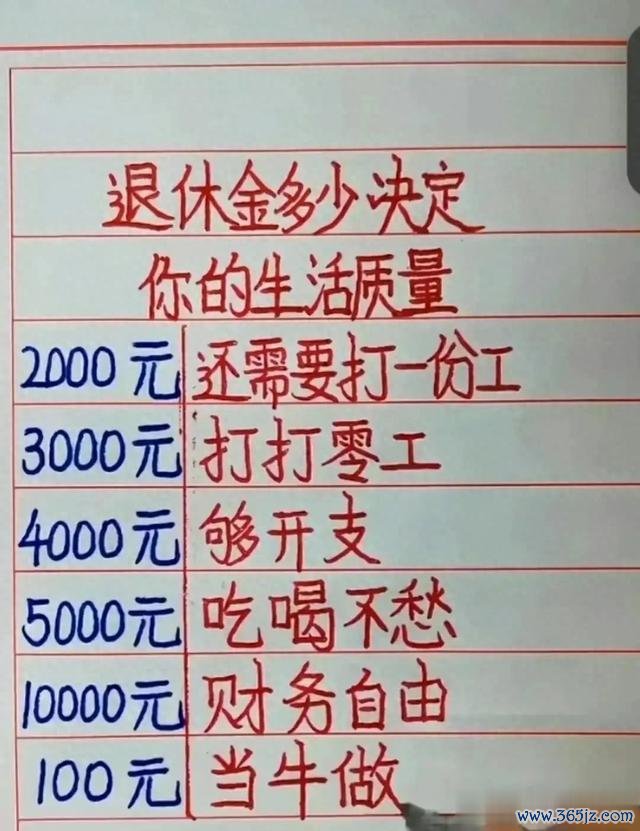 退休金多少决定
你的生活质量
2000元 还需要打一份工
3000元 打打零工
4000元 够开支
5000元 吃喝不愁
10000元 财务自由
100元 当牛做
www.365jz.com